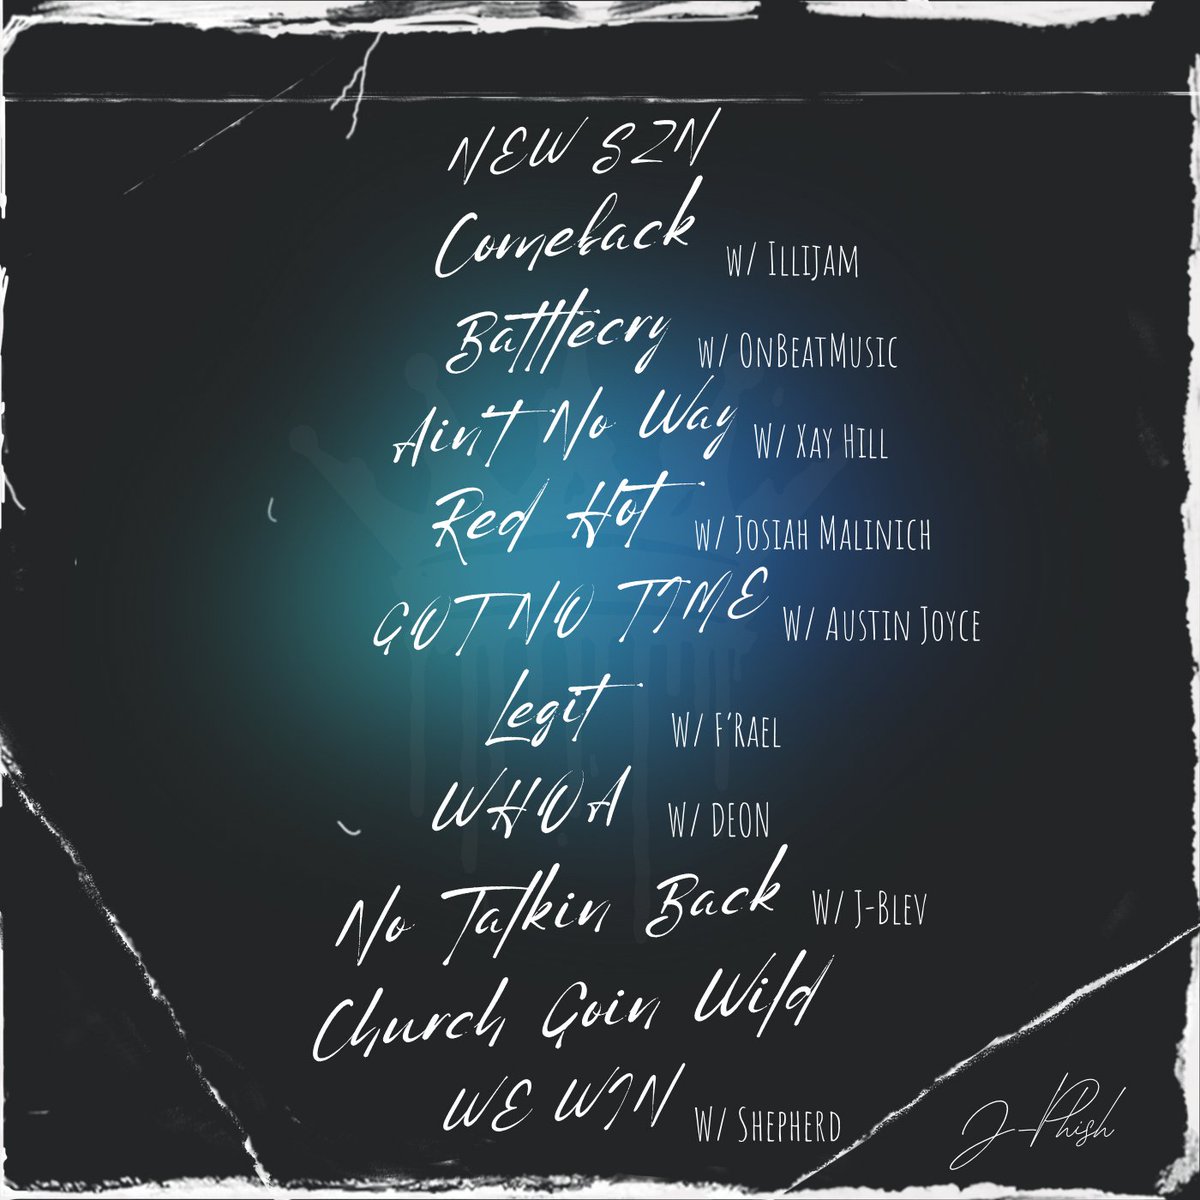 NEW SZN
Comeback w/ Illijam
Battlecry w/ OnBeatMusic
Ain't No Way w/ Xay Hill
Red Hot w/ Josiah Malinich
GOT NO TIME w/ Austin Joyce
Legit w/ F'Rael
WHOA w/ DEON
No Talkin Back w/ J-Blev
Church Goin Wild
WE WIN w/ Shepherd
J-Phish